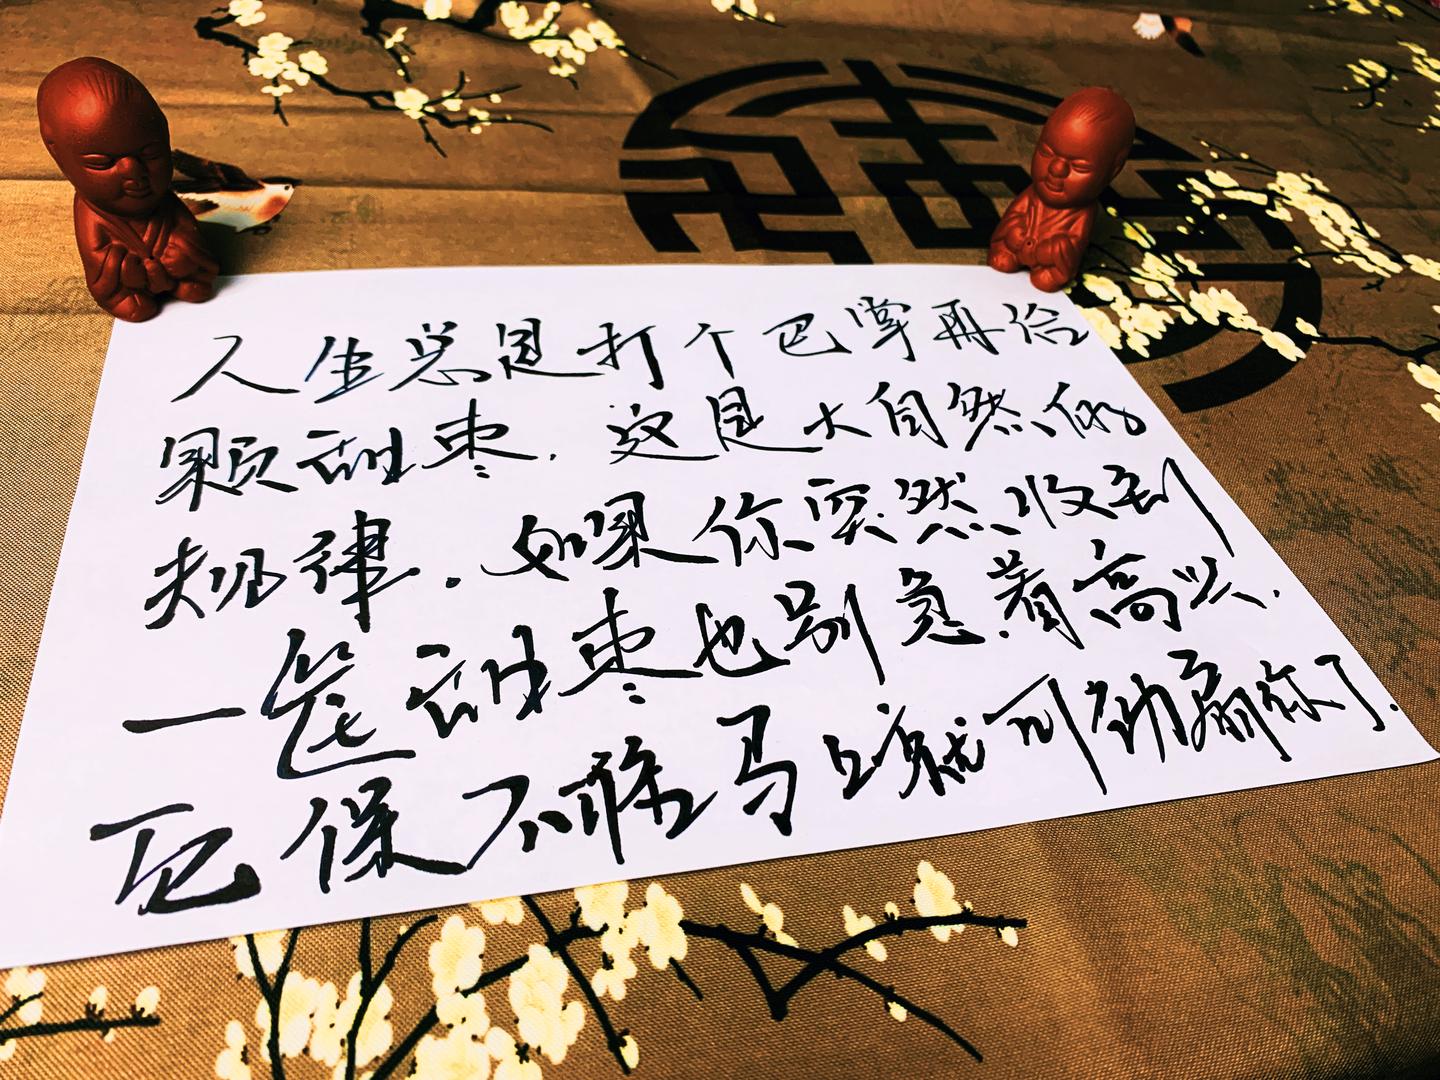 人生总是打个巴掌再给
颗甜枣,这是大自然的
规律.如果你突然收到
一筐甜枣也别急着高兴.
它保不准马上就到动扇你了.